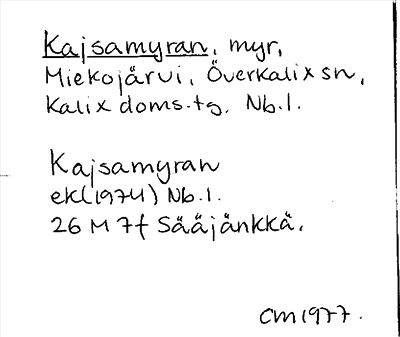 Kajsamyran, myr,
Miekojärvi, Överkalix sn,
Kalix doms.tg. Nb.l.
Kajsamyran
ek(1974) Nb.l.
26 M 7f Sääjänkkä.
CM 1977.